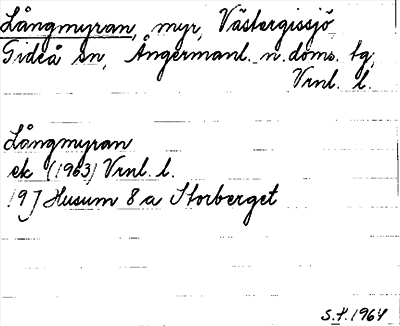 Långmyran, myr, Västergissjö
Gideå sn, Ångermanl. n. doms. tg,
Vrnl. l.
Långmyran
ek (1963) Vrnl. l.
19 J Husum 8 a Storberget
S.F. 1964